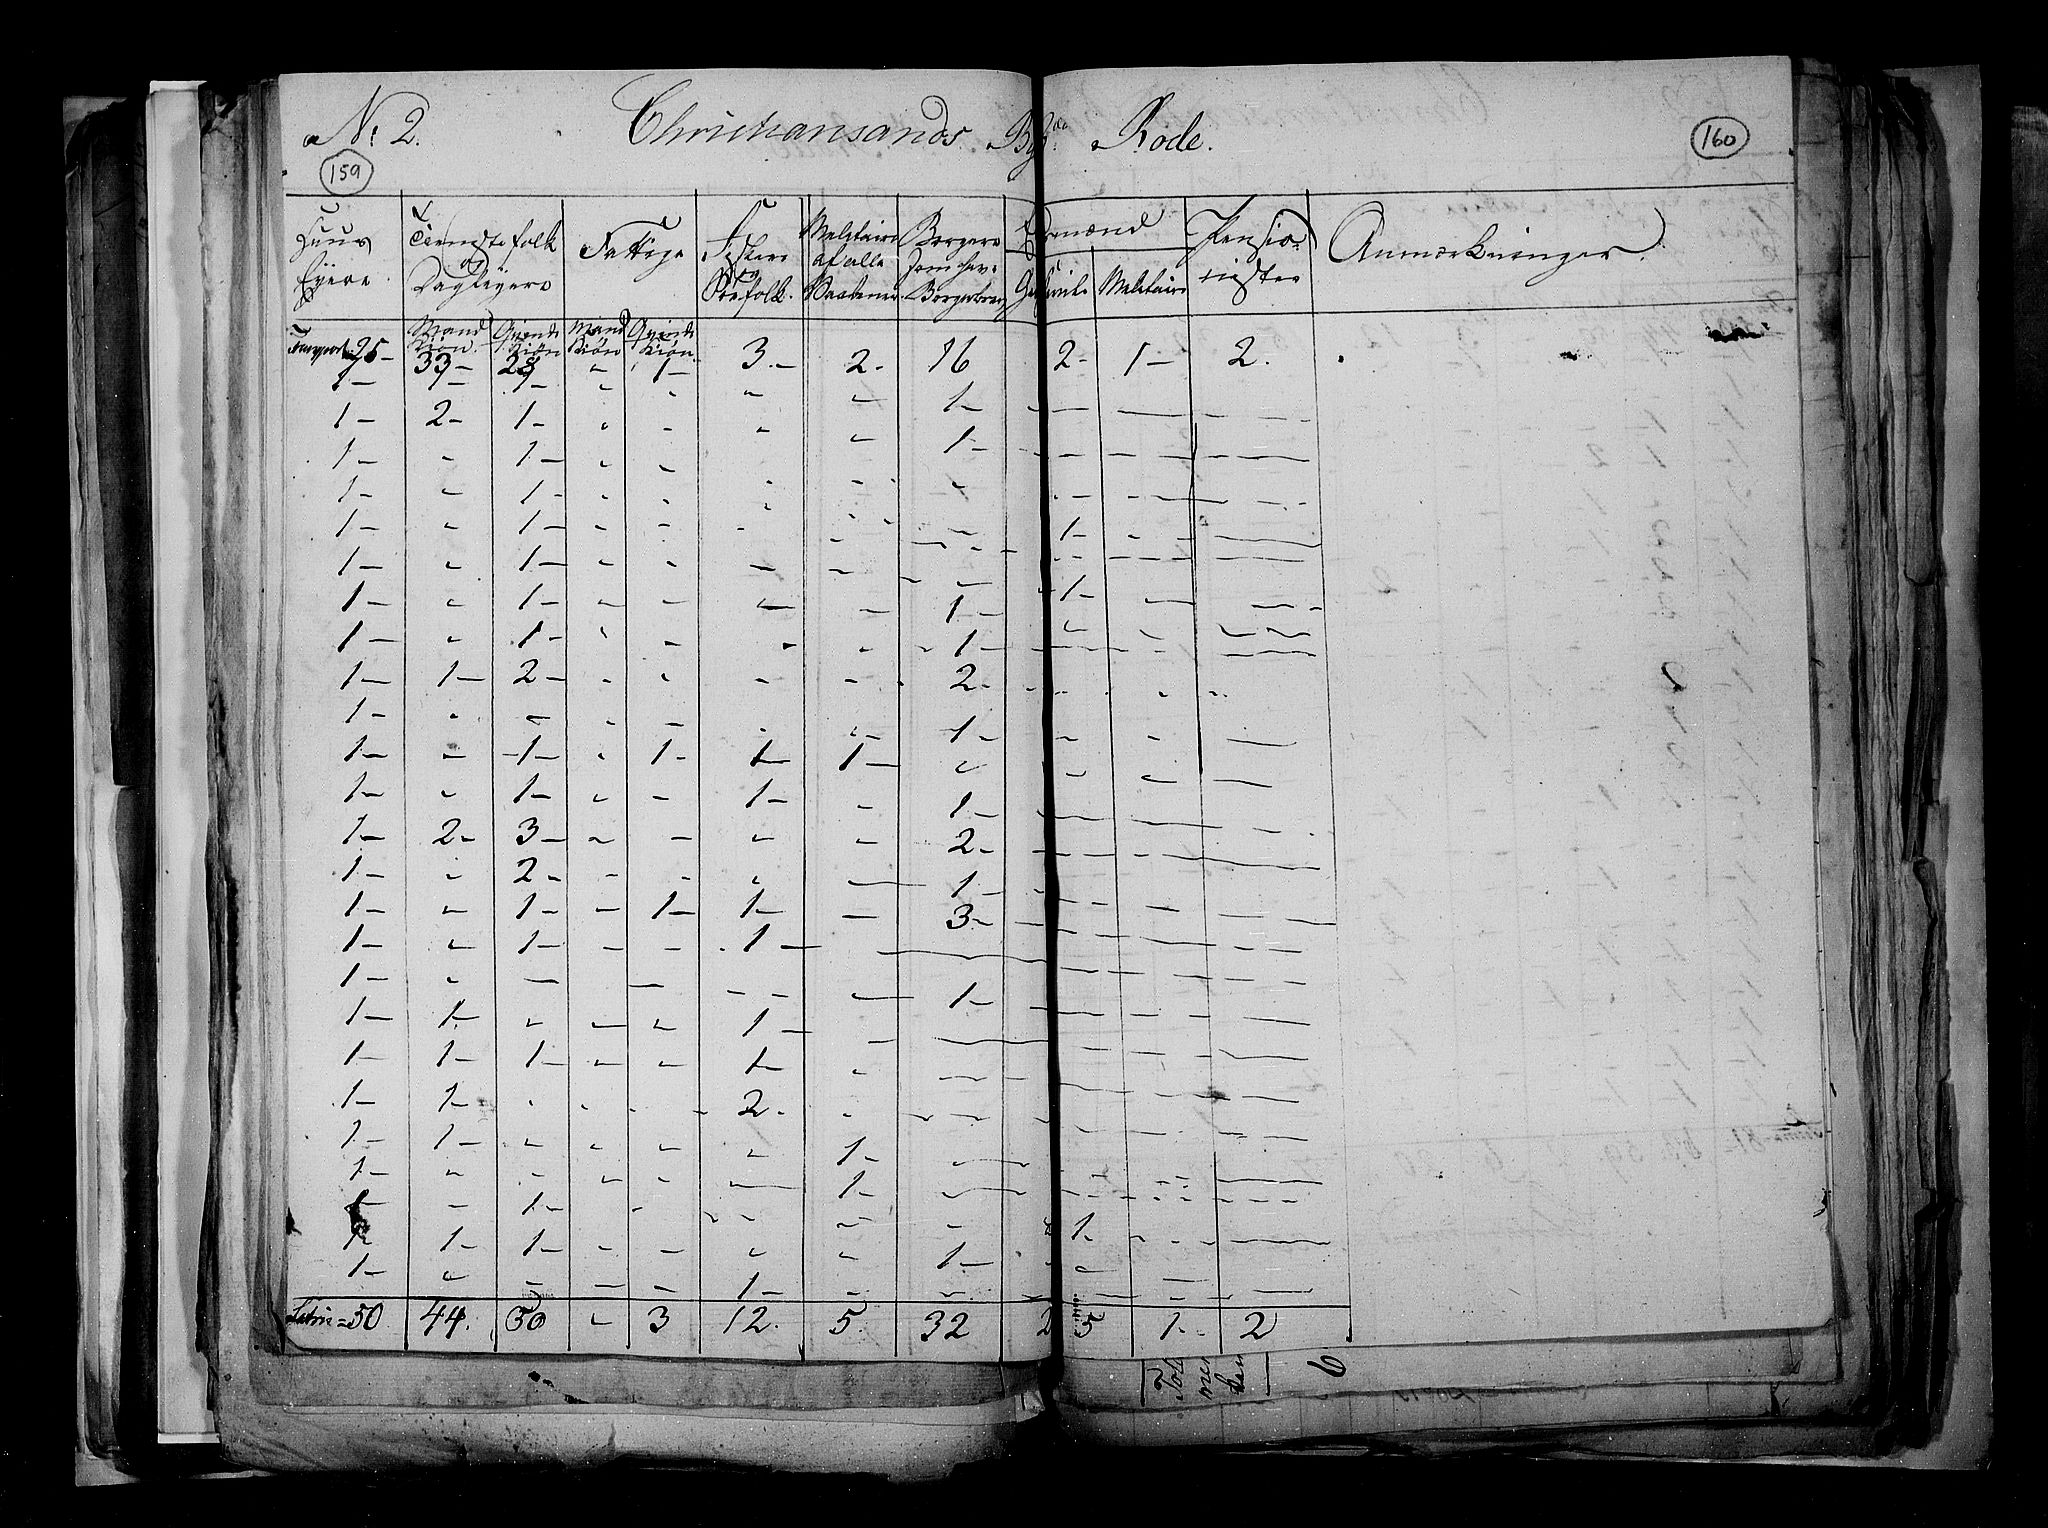 No 2. Christiansands Rode.
159 160
Huus Eyere. Tieneste folk og Dagleyere Fattige Fiskere og Søefolk. Militaire af alle Borgere som have Borgerbrev Militaire Pensionister Anmærkninger.
Mand Kiøn. Qvinde Kiøn Mand Kiøn Qvinde Kiøn.
Transport 25 - 33 - 28 " 1 - 3. - 2 - 16 2 - 1 - 2.
1 - 1 - 1 - " - " - 1 - - - -
1 - 2 - 1 - " - " - 1 - - - -
1 - " 1 - " - - - " - - -
1 - " 1 - " - - - - 1 - - -
1 - " 1 - " - - - - - - -
1 - " 1 - " - - - - 1 - - -
1 - " 1 - - - - - 1 - - - -
1 - " 1 - " - - - 1 - - - -
1 - 1 - 2 - - - - - 2 - - - -
1 - " - " - - - 1 - - - -
1 - - 1 - " 1 - 1 - 1 - " - - -
1 - " 1 - " - 1 - - 1 - - - -
1 - 2 - 3 - - - " - 2 - - - -
1 - " 2 - - - " - 1 - - - -
1 - - 1 - - 1 - 1 - - 3 - - - -
1 - " 1 - - - 1 - - - - -
1 - " - - - - - 1 - - - -
1 - 1 - " - " 1 - - - - - -
1 - 1 - 1 - - " 1 - " - - - -
1 - 1 - - - - 2 - - - - - -
1 - 1 - " " " " 1 - - - - -
1 - " - " - - 1 - - - - -
1 - - 1 - - - - - - 1 - - -
1 - 1 - 1 - - - " " 1 - - - -
1 - " - - - 1 - - - - - -
Latrie = 50 44. 50 " 3 12. 5. 32 5 1 - 2